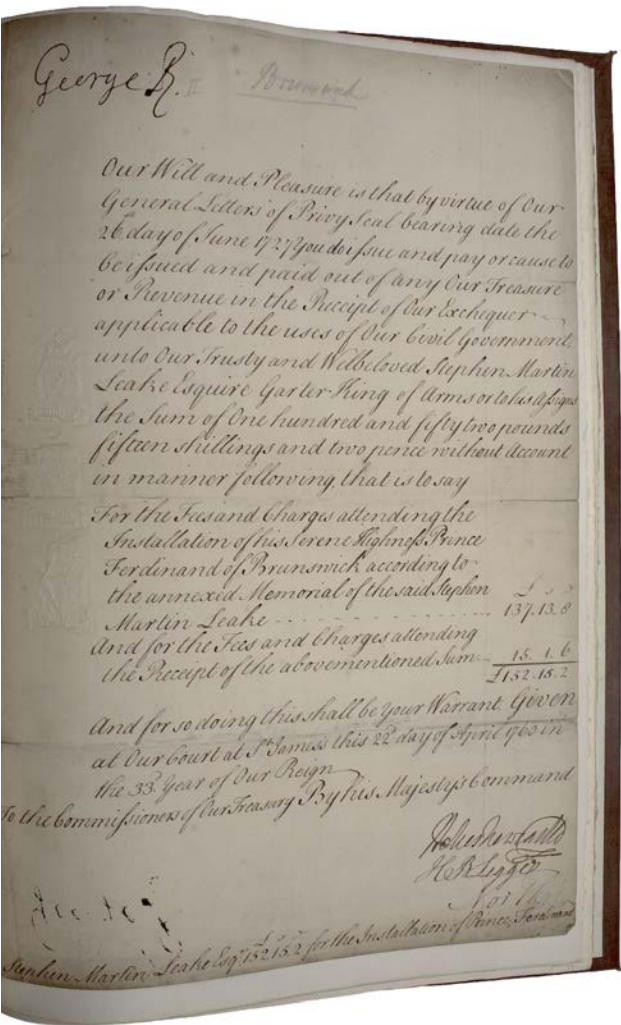 George R. II Brunswick
Our Will and Pleasure is that by virtue of Our
General Letters of Privy Seal bearing date the
26th day of June 1727 You do issue and pay or cause to
be issued and paid out of any Our Treasure
or Revenue in the Receipt of Our Exchequer
applicable to the uses of Our Civil Government,
unto Our Trusty and Welbeloved Stephen Martin
Leake Esquire Garter King of Arms or to his Assigns
the Sum of One hundred and fifty two pounds
fifteen shillings and two pence without Account
in manner following, that is to say
For the Fees and Charges attending the
Installation of his Serene Highness Prince
Ferdinand of Brunswick according to
the annexed Memorial of the said Stephen £ s d
Martin Leake - - - - - - - - - - - 137.13.8
And for the Fees and Charges attending
the Receipt of the abovementioned Sum - - 15.1.6
£152.15.2
And for so doing this shall be Your Warrant. Given
at Our Court at St. James's this 22d day of April 1760 in
the 33d Year of Our Reign
To the Commissioners of Our Treasury By his Majesty's Command
Holles Newcastle
H B Legge
Stephen Martin Leake Esqr. 152.15.2 for the Installation of Prince Ferdinand